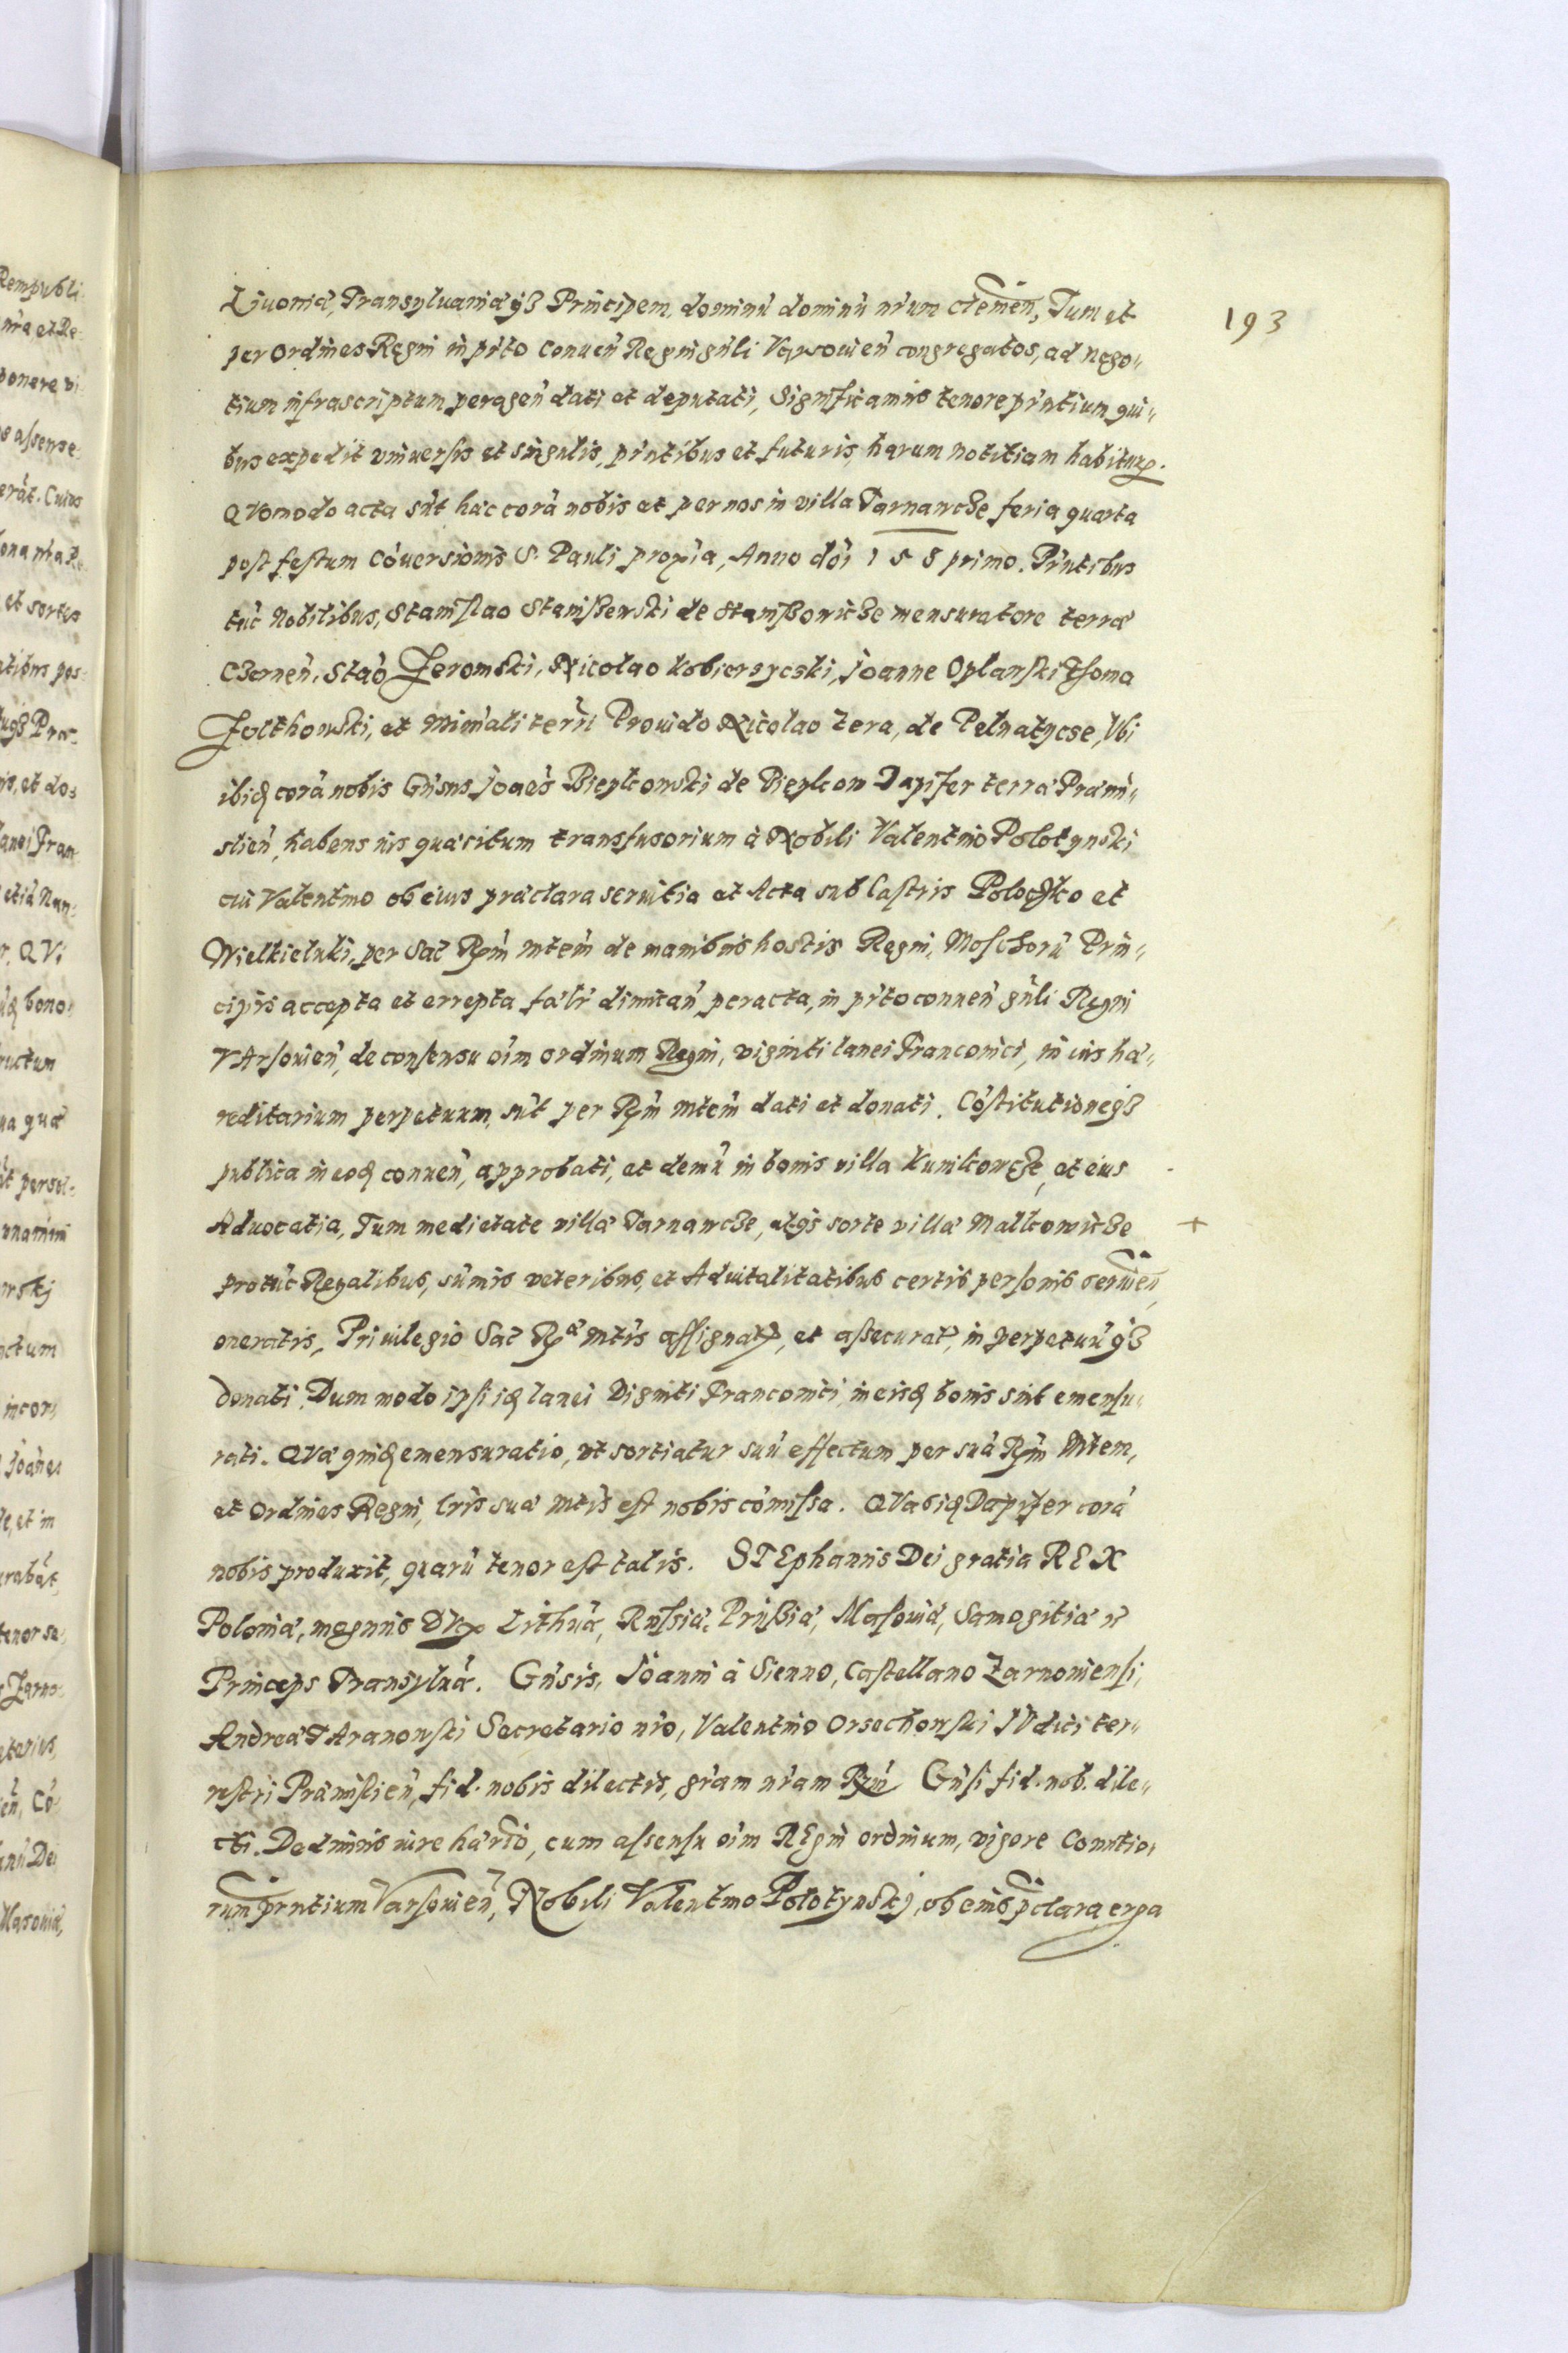 193
Liuoniæ, Transyluaniæq3 Principem, dominū dominū nrum clemen, Tum et
per Ordines Regni in prīto Conuen̄ Regni gn̄li Varsouien̄ congregatos, ad nego„
tium infrascriptum peragen̄ dati et deputati, Significamus tenore prn̄tium qui„
bus expedit vniuersis et singulis, prn̄tibus et futuris, harum notitiam habitur.
QVomodo acta sūt hæc corā nobis et per nos in villa Tarnawcze feria quarta
post festum Cōuersionis S. Pauli proxīa, Anno dōi 158 primo. Prn̄tibus
tūc Nobilibus, Stanislao Staniszewski de Staniszowicze mensuratore terræ
Czernen̄, Stāo Zeromski, Nicolao Kobierzycski, Joanne Oplanski Thoma
Zolthowski, et Min̄ali terr̄i Prouido Nicolao Zera, de Pelnatycze, Vbi
ibiq corā nobis Gn̄sus Joaēs Pieykowski de Pieykow Dapifer terræ Præmi„
slien̄, habens ius quæsitum transfusorium à Nobili Valentino Polotynski
cui Valentino ob eius præclara seruitia et Acta sub Castris Poloczko et
Wielkieluki, per Sac Rm̄ Mtem̄ de manibus hostis Regni, Moschorū Prin„
cipis accepta et errepta fālr dimican̄ peracta, in prīto conuen̄ gn̄li Regni
VArsouien̄, de consensu oīm ordinum Regni, viginti lanei Franconici, in ius hæ„
reditarium perpetuum, sūt per Rm̄ Mtem̄ dati et donati. Cōstitutioneq3
publica in eoq conuen̄, approbati, et demū in bonis villa Kunikowcze, et eius
Aduocatia, Tum medietate villæ Tarnawcze, atq3 sorte villæ Malkowicze +
pro tūc Regalibus, sūmis veteribus, et Aduitalitatibus certis personis seruien̄,
oneratis, Priuilegio Sac Ræ Mtis assignat, et assecurat, in perpetuū q3
donati. Dum modo ipsi iq lanei Viginti Franconici, in eisq bonis sint emensu„
rati. QVæ quiq emensuratio, vt sortiatur suū effectum per suā Rm̄ Mtem,
et Ordines Regni, lris suæ Mtis est nobis cōmissa. QVas iq Dapifer corā
nobis produxit, quarū tenor est talis. STEphanus Dei gratia REX
Poloniæ, magnus DVx Lithuæ, Russiæ, Prussiæ, Masouiæ, Samogitiæ
Princeps Transyluæ. Gn̄sis, Joanni à Sienno, Castellano Zarnouiensi,
Andreæ TAranowski Secretario nrō, Valentino Orsechowski JVdici ter„
restri Præmislien̄, fid. nobis dilectis, grām nrām Rm̄ Gn̄si fid. nob. dile„
cti. Dedimus iure hærdō, cum assensu oīm REgni ordinum, vigore Comitio„
rum prn̄tium Varsouien̄, Nobili Valentino Polotynskj, ob eius pclara erga